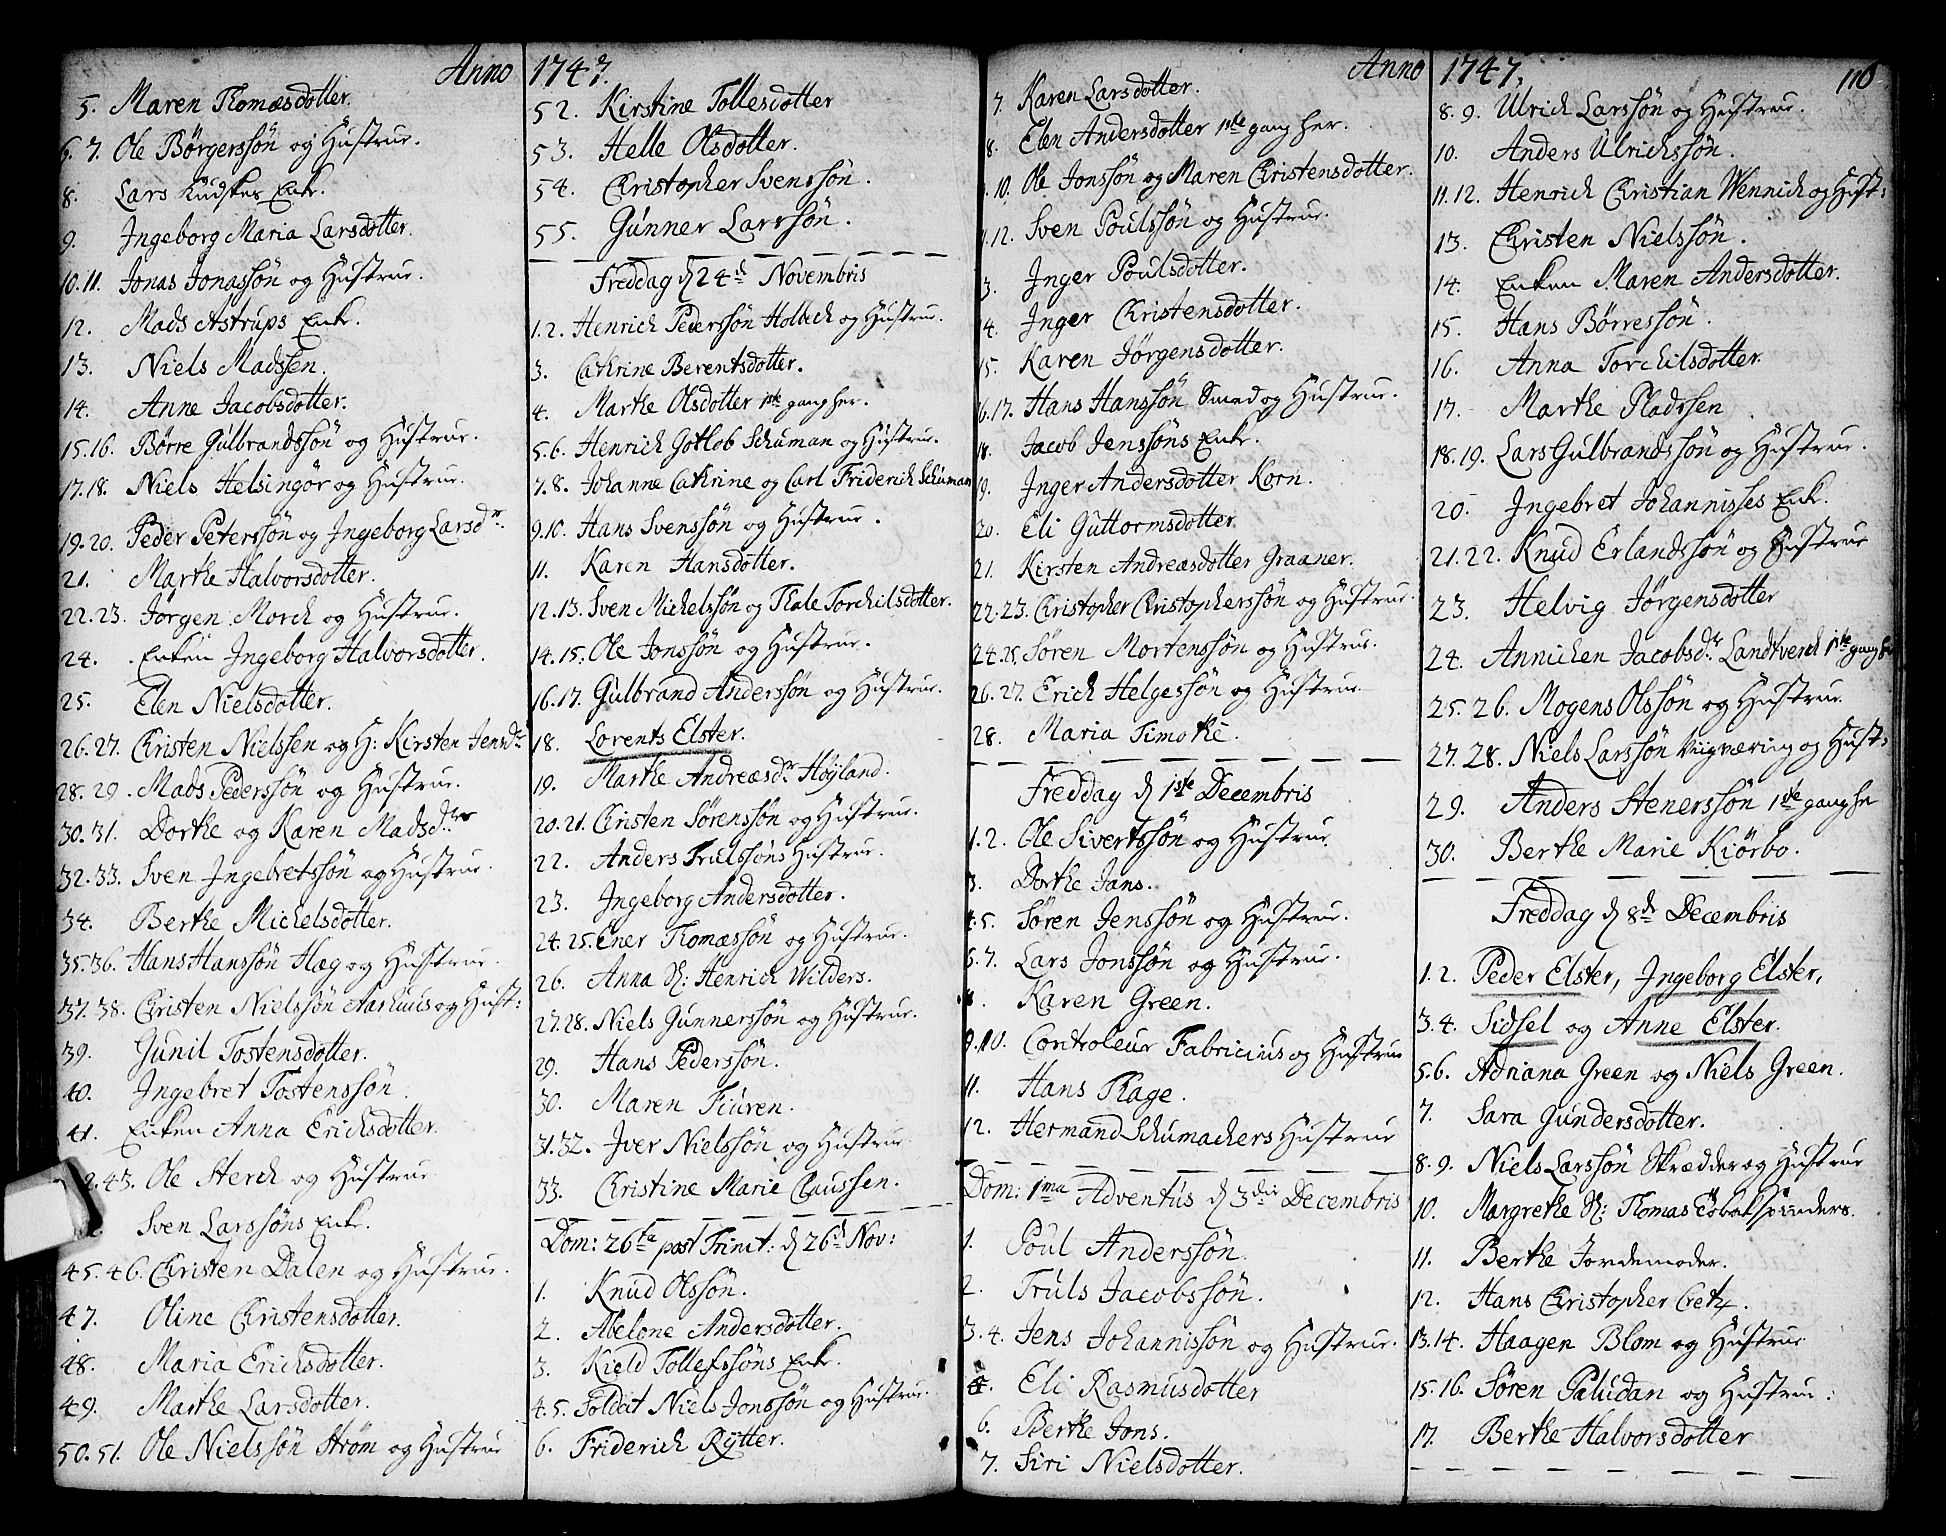 Anno 1747.
5. Maren Thomæsdotter.
6. 7. Ole Börgerssön og Hustrue.
8. Lars Kudskes Enk.
9. Ingeborg Maria Larsdotter.
10. 11. Jonas Jonassön og Hustrue.
12. Mads Astrups Enk.
13. Niels Madssen.
14. Anne Jacobsdotter.
15. 16. Börre Gulbrandssön og Hustrue.
17. 18. Niels Helsingör og Hustrue.
19. 20. Peder Peterssön og Ingeborg Larsdr.
21. Marthe Halvorsdotter.
22. 23. Jörgen Morch og Hustrue.
24. Enken Ingeborg Halvorsdotter.
25. Elen Nielsdotter.
26. 27. Christen Nielssen og H: Kirsten Jensdr
28. 29. Mads Pederssön og Hustrue.
30. 31. Dorthe og Karen Madsdtre
32. 33. Sven Ingebretssön og Hustrue.
34. Berthe Michelsdotter.
35. 36. Hans Hanssön Hæg og Hustrue.
37. 38. Christen Nielssön Aarhuus og Hust:
39. Gunil Tostensdotter.
40. Ingebret Tostenssön.
41. Enken Anna Erichsdotter.
2. 43. Ole Sterch og Hustrue
Sven Larssöns Enk.
45. 46. Christen Dalen og Hustrue.
47. Oline Christensdotter.
48. Maria Erichsdotter.
49. Marthe Larsdotter.
50. 51. Ole Nielssön Ström og Hustrue
52. Kirstine Tollesdotter
53. Helle Olsdotter.
54. Christopher Svenssön.
55. Gunner Larssön.
Freddag d 24d Novembris
1. 2. Henrich Pederssön Holbech og Hustrue.
3. Cathrine Berentsdotter.
4. Marthe Olsdotter 1ste gang her.
5. 6. Henrich Gotlob Schuman og Hustrue.
7. 8. Johanne Cathrine og Carl Friderich Schuman
9. 10. Hans Svenssön og Hustrue.
11. Karen Hansdotter.
12. 13. Sven Michelssön og Thale Torchilsdotter.
14. 15. Ole Jonssön og Hustrue.
16. 17. Gulbrand Anderssön og Hustrue.
18. Lorents Elster.
19. Marthe Andreæsdr Höyland.
20. 21. Christen Sörenssön og Hustrue.
22. Anders Trulssöns Hustrue.
23. Ingeborg Andersdotter.
24. 25. Ener Thomæssön og Hustrue.
26. Anna S: Henrich Wilders.
27. 28. Niels Gunnerssön og Hustrue.
29. Hans Pederssön.
30. Maren Fiuren.
31. 32. Iver Nielssön og Hustrue
33. Christine Marie Claussen.
Dom: 26ta post Trinit: d 26d Nov:
1. Knud Olssön.
2. Abelone Andersdotter.
3. Kield Tollefssöns Enk.
4. 5. Soldat Niels Jonssön og Hustrue.
6. Friderich Rÿtter.
Anno 1747. 110
7. Karen Larsdotter.
8. Elen Andersdotter 1ste gang her.
10. Ole Jonssön og Maren Christensdotter.
12. Sven Poulssön og Hustrue.
3. Inger Poulsdotter.
4. Inger Christensdotter.
15. Karen Jörgensdotter.
16. 17. Hans Hanssön Smed og Hustrue.
18. Jacob Jenssöns Enk.
19. Inger Andersdotter Korn.
20. Eli Guttormsdotter
21. Kirsten Andreæsdotter Graaner.
22. 23. Christopher Christopherssön og Hustrue.
24. 25. Sören Mortenssön og Hustrue.
26. 27. Erich Helgessön og Hustrue.
28. Maria Timothe.
Freddag d 1ste Decembris
1. 2. Ole Sivertssön og Hustrue.
3. Dorthe Jans.
4. 5. Sören Jenssön og Hustrue.
6. 7. Lars Jonssön og Hustrue.
Karen Green.
9. 10. Controleur Fabricius og Hustrue
11. Hans Rage.
12. Hermand Schumachers Hustrue
Dom: 1ma Adventus d 3die Decembris
1. Poul Anderssön.
2. Truls Jacobssön.
3. 4. Jens Johannissön og Hustrue.
Eli Rasmusdotter
6. Berthe Jons.
7. Siri Nielsdotter.
8. 9. Ulrich Larssön og Hustrue.
10. Anders Ulrichssön.
11. 12. Henrich Christian Wennich og Hust:
13. Christen Nielssön.
14. Enken Maren Andersdotter.
15. Hans Börressön.
16. Anna Torchilsdotter.
17. Marthe Pladssen
18. 19. Lars Gulbrandssön og Hustrue.
20. Ingebret Johannisses Enk.
21. 22. Knud Erlandssön og Hustrue
23. Helvig Jörgensdotter
24. Annichen Jacobsdr Landtverch 1ste gang he
25. 26. Mogens Olssön og Hustrue.
27. 28. Niels Larssön Viigværing og Hust:
29. Anders Stenerssön 1ste gang he
30. Berthe Marie Kiörbo.
Freddag d 8d Decembris
1. 2. Peder Elster, Ingeborg Elster,
3. 4. Sidsel og Anne Elster.
5. 6. Adriana Green og Niels Green.
7. Sara Gundersdotter.
8. 9. Niels Larssön Skrædder og Hustrue
10. Margrethe S: Thomas Tobakspinders.
11. Berthe Jordemoder.
12. Hans Christopher Cretz.
13. 14. Haagen Blom og Hustrue
15. 16. Sören Paludan og Hustrue:
17. Berthe Halvorsdotter